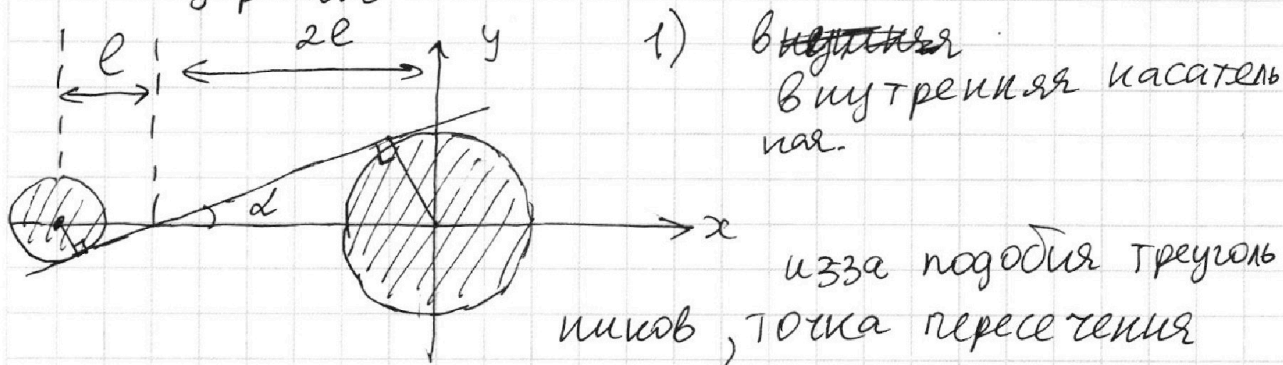 l
2l
y
1) внутренняя касатель
ная.
α
x
изза подобия треуголь
ников, точка пересечения